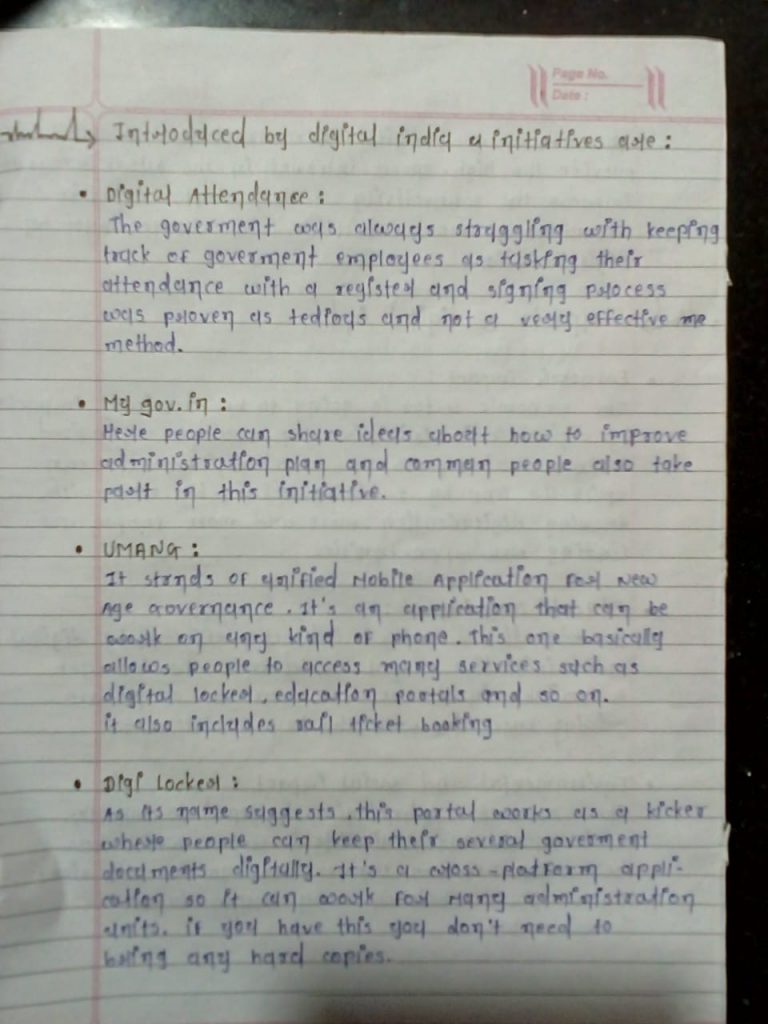 Page No.
Date :
Introduced by digital india a initiatives are :
• Digital Attendance :
The goverment was always struggling with keeping
track of goverment employees as tasking their
attendance with a register and signing process
was proven as tedious and not a very effective me
method.
• My gov.in :
Here people can share ideas about how to improve
administration plan and comman people also take
part in this initiative.
• UMANG :
It stands of unified Mobile Application For New
Age Governance. It's an application that can be
work on any kind of phone. This one basically
allows people to access many services such as
digital locker, education portals and so on.
it also includes rail ticket booking
• Digi Locker :
As its name suggests, this portal works as a kicker
where people can keep their several goverment
documents digitally. It's a cross-platform appli-
cation so it can work for Many administration
units. if you have this you don't need to
bring any hard copies.